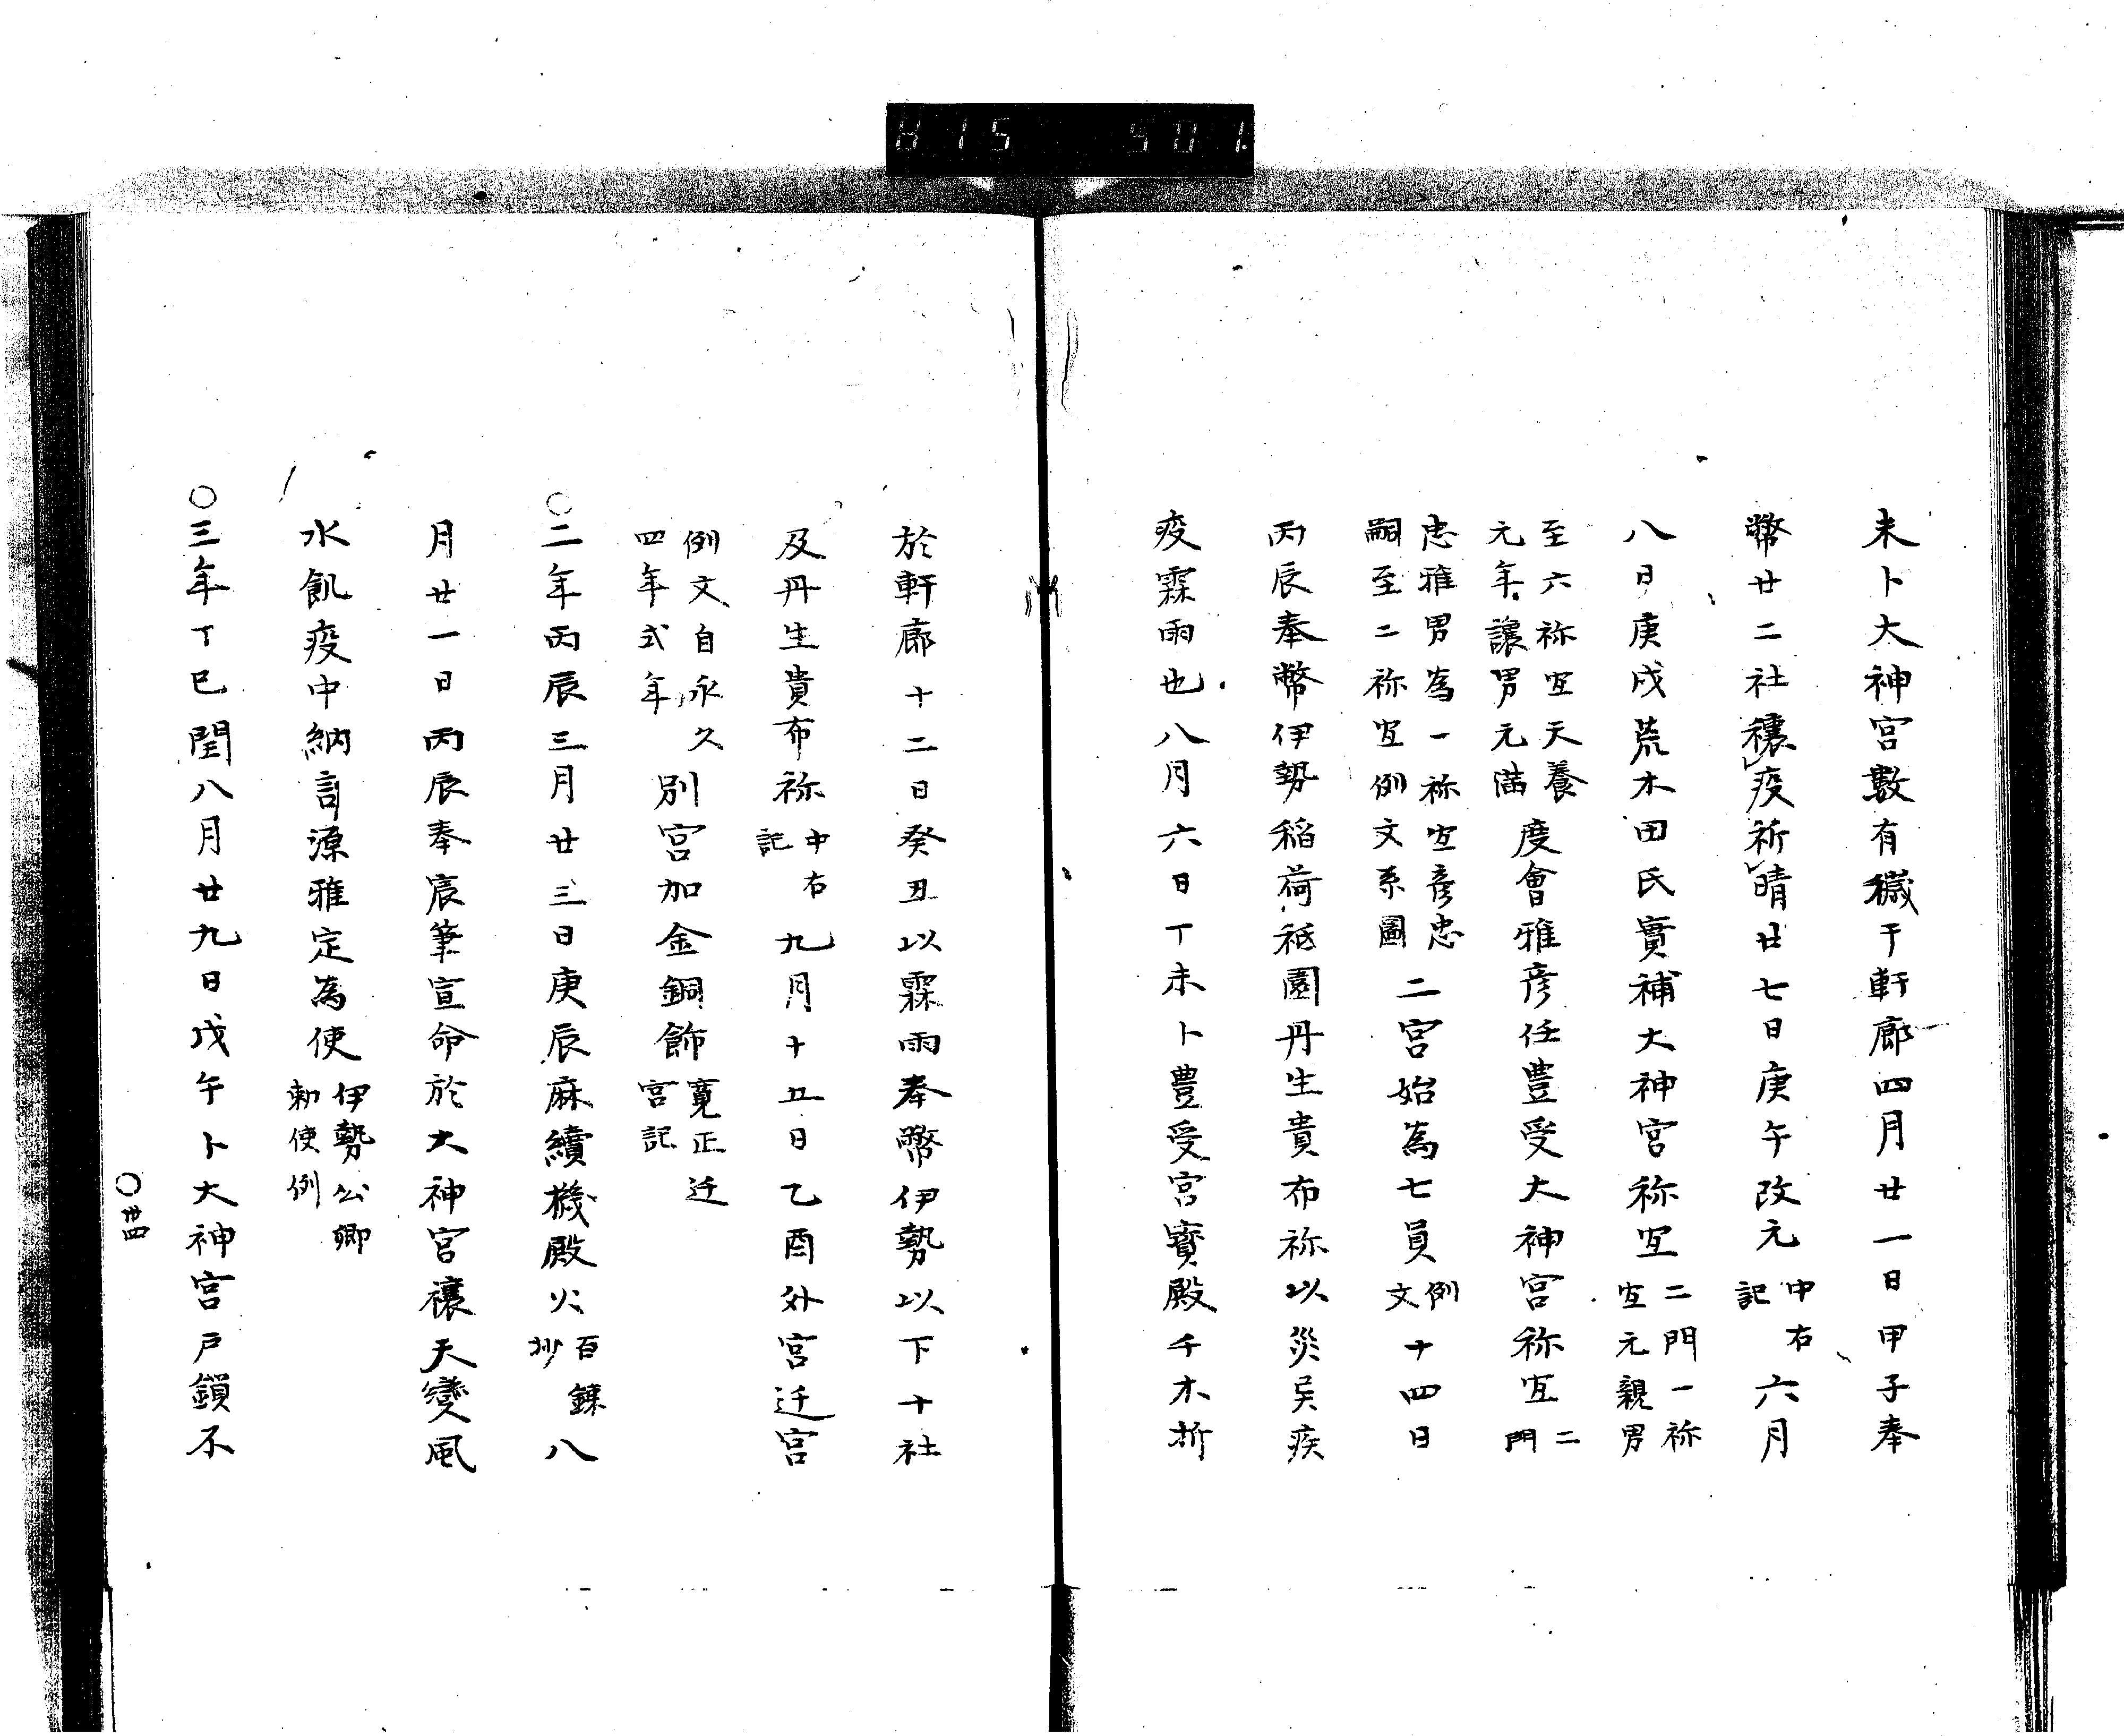 815 501.
未卜大神宮數有穢于軒廊四月廿一日甲子奉
幣廿二社禳疫祈晴廿七日庚午改元中右記六月
八日庚戌荒木田氏實補大神宮祢宜二門一祢宜元親男
至六祢宜天養元年讓男元満度會雅彦任豊受大神宮祢宜二門
忠雅男為一祢宜彦忠嗣至二祢宜例文系圖二宮始為七員例文十四日
丙辰奉幣伊勢稲荷祗園丹生貴布祢以災旲疾
疫霖雨也八月六日丁未卜豊受宮寳殿千木折
於軒廊十二日癸丑以霖雨奉幣伊勢以下十社
及丹生貴布祢中右記九月十五日乙酉外宮迁宮
例文自永久四年式年別宮加金銅飾寛正迁宮記
〇二年丙辰三月廿三日庚辰麻續機殿火百錬抄八
月廿一日丙辰奉宸筆宣命於大神宮禳天變風
水飢疫中納言源雅定為使伊勢公卿勅使例
〇三年丁巳閏八月廿九日戊午卜大神宮戸鎖不
〇卅四